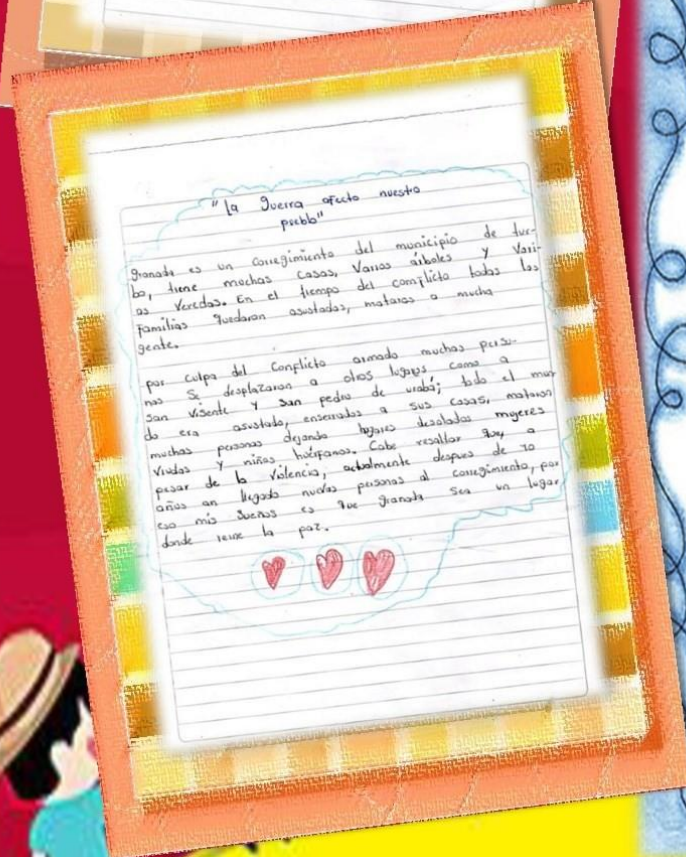 "La guerra afecto nuestro
pueblo"
Granada es un corregimiento del municipio de tur-
bo, tiene muchas casas, varios árboles y vari-
as veredas. En el tiempo del conflicto todas las
familias quedaron asustadas, mataros a mucha
gente.
por culpa del conflicto armado muchas perso-
nas se desplazaron a otros lugares como a
San visente y San pedro de urabá; todo el mun
do era asustado, enserrados a sus casas, mataron
muchas personas dejando lugares desolados mujeres
viudas y niños huérfanos. Cabe resaltar que, a
pesar de la violencia, actualmente despues de 10
años an llegado nuevas personas al corregimiento, por
eso mis sueños es que granada sea un lugar
donde reine la paz.